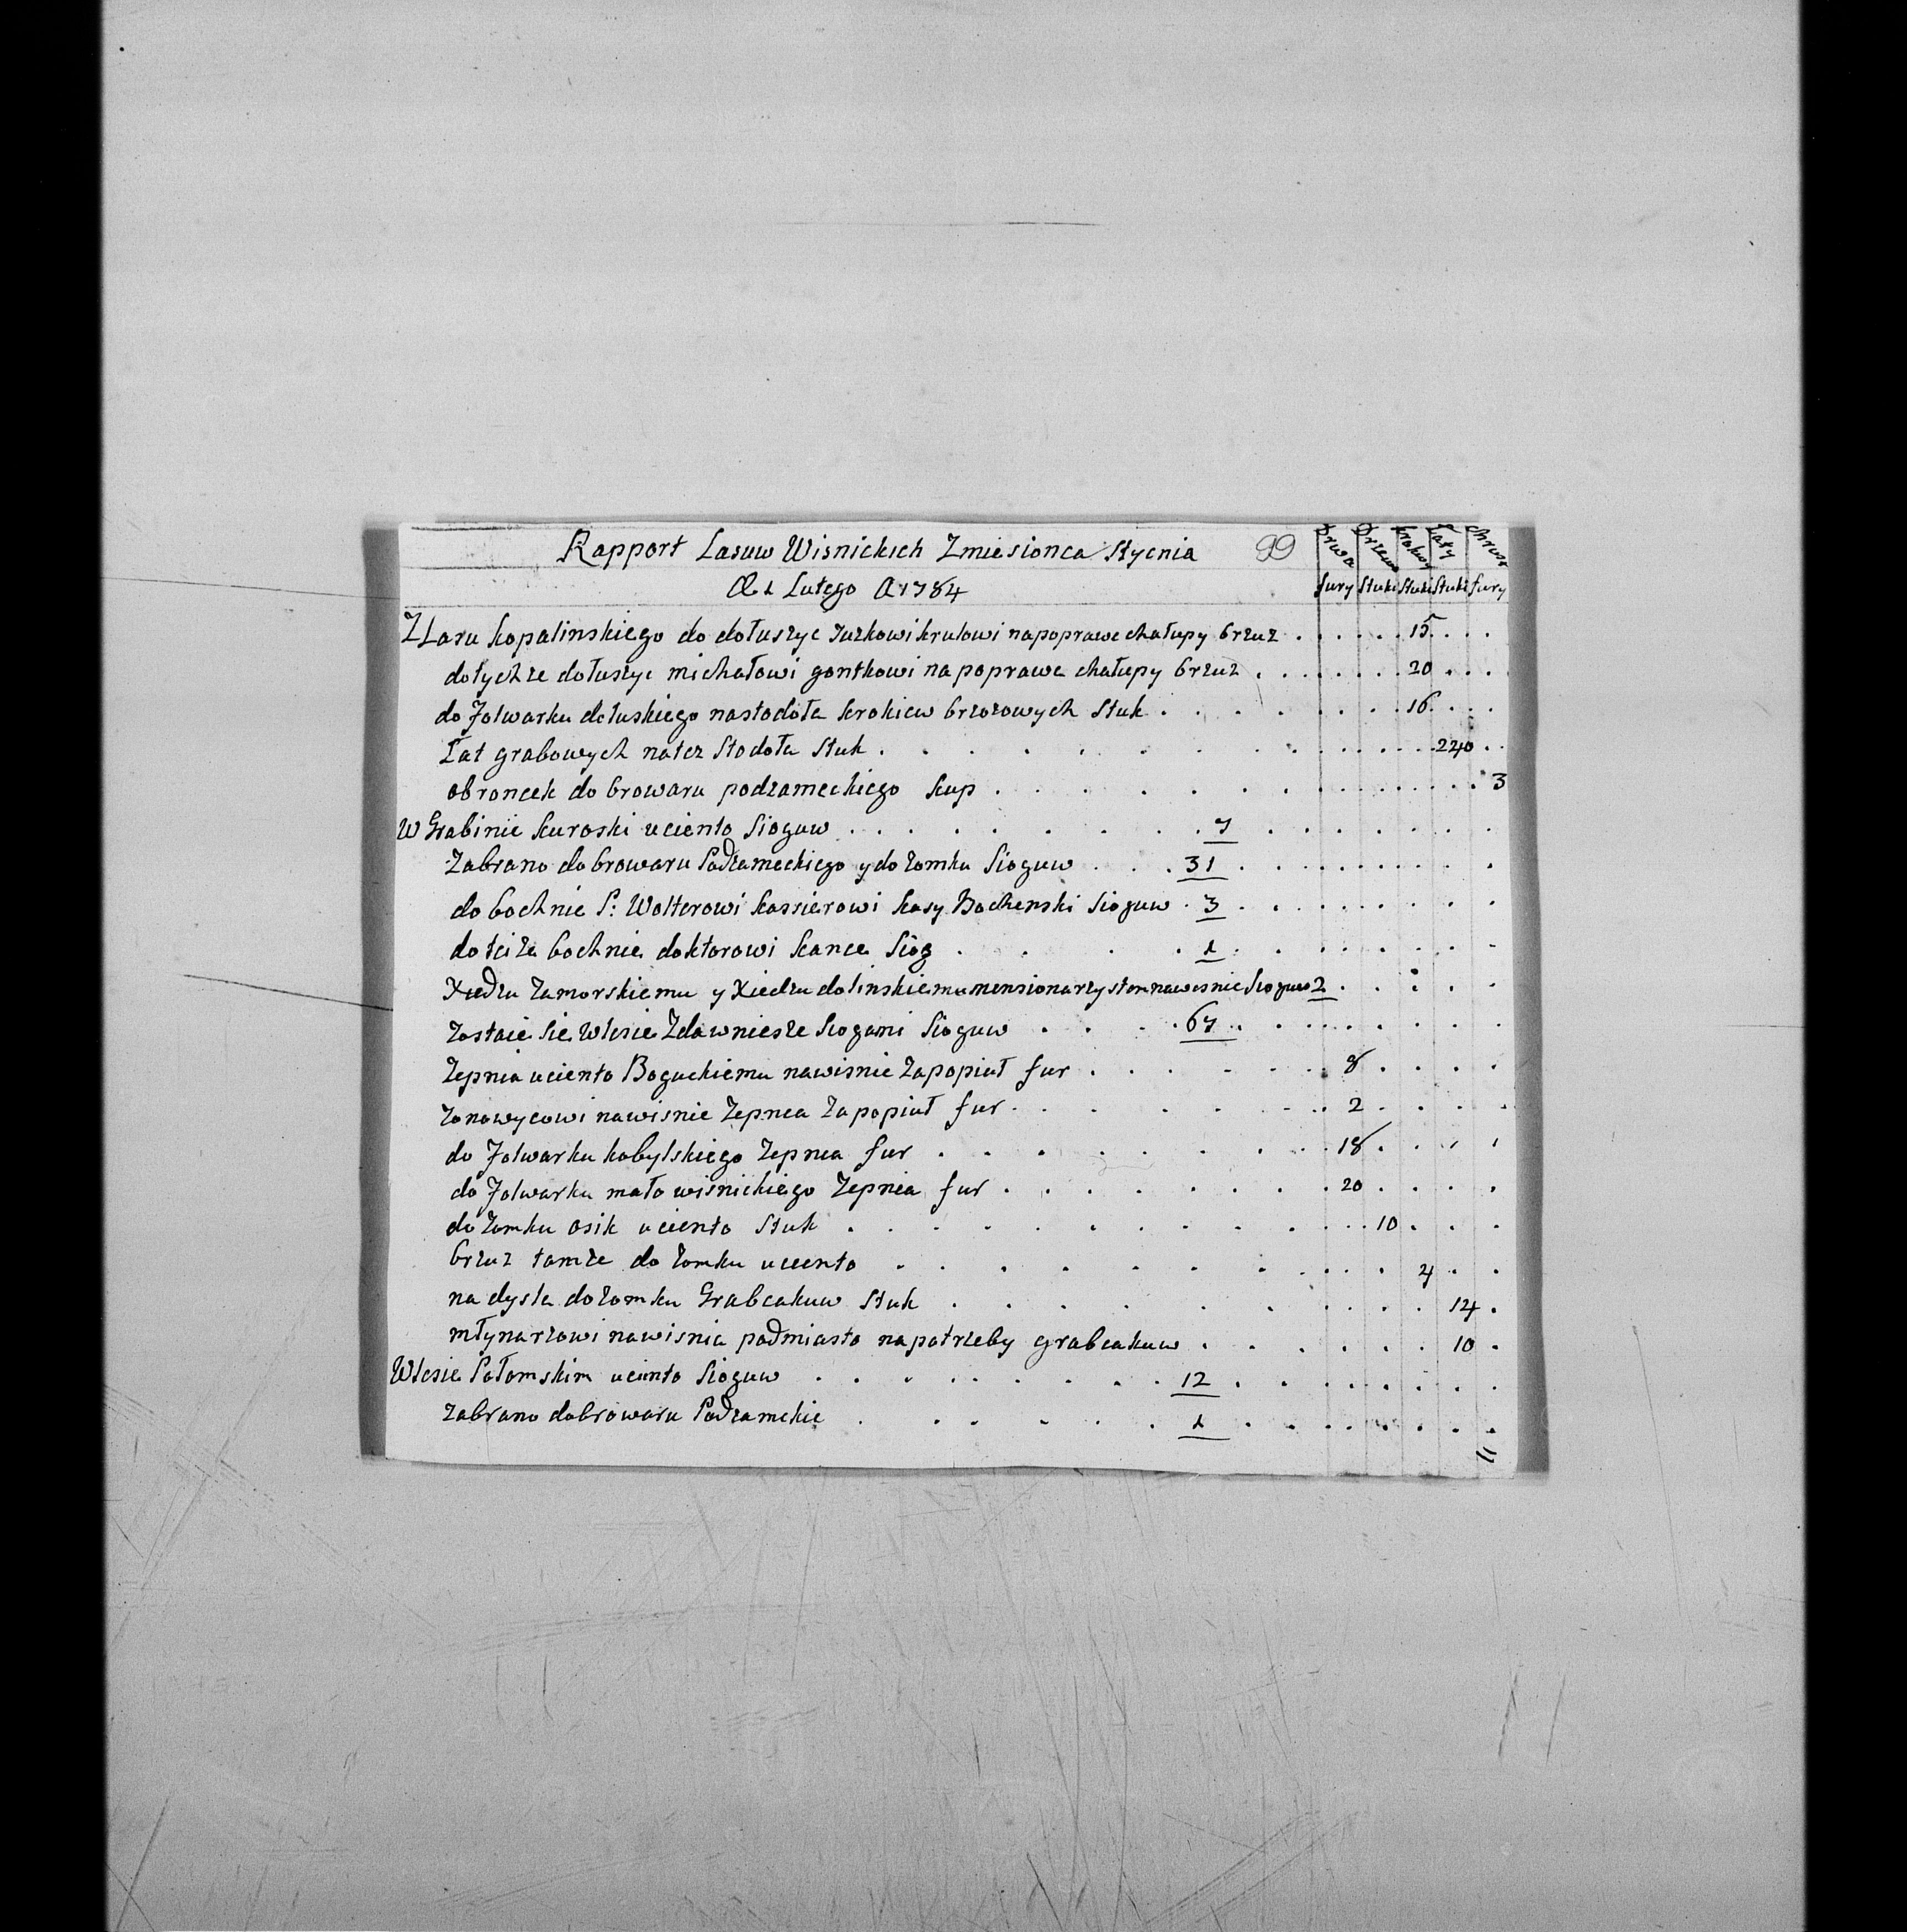 Rapport Lasuw Wisnickich Zmiesionca Stycnia 99
Lutego A 1784
Drwa Drzewo krokwy Łaty chrust
fury Stuki Stuki Stuki fury
Z Lasu kopalinskiego do dołuszyc Jurkowi krulowi napoprawe chałupy brzuz . . . 15 . . .
dotychze dołuszyc michałowi gontkowi na poprawe chałupy brzuz . . . 20 . . .
do Folwarku dołuskiego nastodoła krokiew brzozowych Stuk . . . 16 . . .
Łat grabowych natez Stodoła Stuk . . . 240 . .
obroncek do browaru podzameckiego kup . . . 3
W Grabinie kuroski uciento Sioguw . . . 7 . . .
Zabrano do browaru Podzameckiego y do zomku Sioguw . . . 31 . . .
do bochnie P: Wolterowi kassierowi kasy Bochenski Sioguw . 3 . . .
do teize bochnie doktorowi kance Siog . . . 1 . . .
Xiedzu zamorskiemu y Xiedzu dolinskiemu mensionarzystom nawisnic Sioguw 2 . . .
zostaie sie Wlesie Zdawniesze Siogami Sioguw . . . 67 . . .
Zepnia uciento Boguckiemu nawisnic zapopiuł fur . . . 8 . . .
zonowycowi nawisnie Zepnia zapopiuł fur . . . 2 . . .
do Folwarku kobylskiego Zepnia fur . . . 18 . . .
do Folwarku mało wisnickiego Zepnia fur . . . 20 . . .
do zomku osik uciento Stuk . . . 10 . . .
brzuz tomze do zomku uciento . . . 4 . .
na dysla do zomku Grabcakuw Stuk . . . 14 .
młynarzowi nawisnia podmiasto napotrzeby grabcakuw . . . 10 .
Wlesie Połomskim uciento Sioguw . . . 12 . . .
zabrano dobrowaru Podzamckie . . . 1 . . .